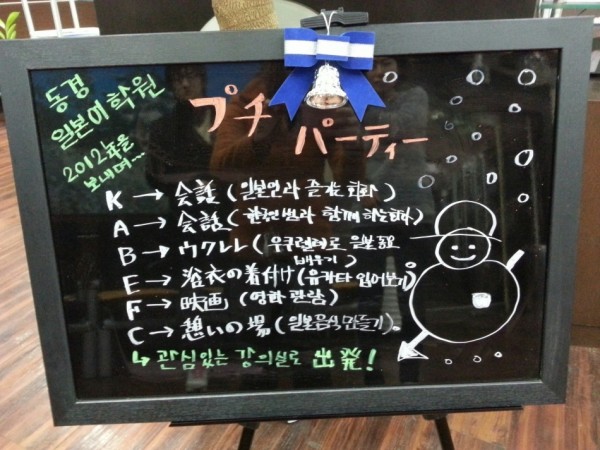 동경
일본어학원
2012年을
보내며...
プチ
パーティー
K → 会話 (일본인과 즐겁게 회화)
A → 会話 (한국인과 함께 하는 회화)
B → ウクレレ (우쿠렐레로 일본동요
배우기)
E → 浴衣の着付け (유카타 입어보기)
F → 映画 (영화 관람)
C → 憩いの場 (일본음식 만들기)。
↳ 관심있는 강의실로 出発!